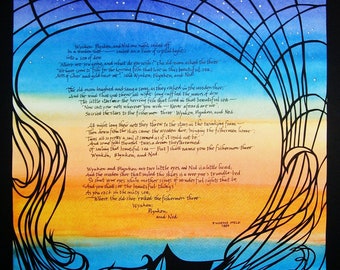 Wynken, Blynken, and Nod one night sailed off
in a wooden shoe — Sailed on a river of crystal light
into a sea of dew
"Where are you going, and what do you wish?" The old moon asked the three
"We have come to fish for the herring fish that live in this beautiful sea
Nets of silver and gold have we" said Wynken, Blynken, and Nod
The old moon laughed and sang a song, as they rocked in the wooden shoe
And the wind that sped them all night long ruffled the waves of dew
The little stars were the herring fish that lived in that beautiful sea —
"Now cast your nets wherever you wish — Never afraid are we"
So cried the stars to the fishermen three Wynken, Blynken, and Nod
All night long their nets they threw to the stars in the twinkling foam
Then down from the skies came the wooden shoe, bringing the fishermen home
'Twas all so pretty a sail it seemed as if it could not be
And some folks thought 'twas a dream they'd dreamed
Of sailing that beautiful sea — but I shall name you the fishermen three
Wynken, Blynken, and Nod
Wynken and Blynken are two little eyes, and Nod is a little head
And the wooden shoe that sailed the skies is a wee one's trundle-bed
So shut your eyes while mother sings of wonderful sights that be
And you shall see the beautiful things
As you rock in the misty sea
Where the old shoe rocked the fishermen three
Wynken
Blynken
and Nod
EUGENE FIELD